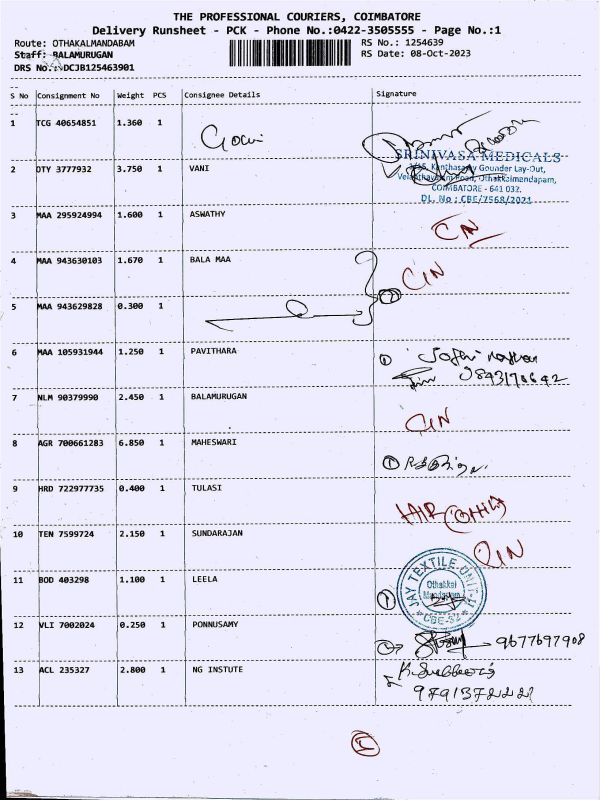 THE PROFESSIONAL COURIERS, COIMBATORE
Delivery Runsheet - PCK - Phone No.:0422-3505555 - Page No.:1
Route: OTHAKALMANDABAM RS No.: 1254639
Staff: BALAMURUGAN RS Date: 08-Oct-2023
DRS No.: DCJB125463901
S No Consignment No Weight PCS Consignee Details Signature
1 TCG 40654851 1.360 1
SRINIVASA MEDICALS
2 DTY 3777932 3.750 1 VANI
COIMBATORE - 641 032.
DL. No : CBE/7568/2021
3 MAA 295924994 1.600 1 ASWATHY
CIN
4 MAA 943630103 1.670 1 BALA MAA
CIN
5 MAA 943629828 0.300 1
6 MAA 105931944 1.250 1 PAVITHARA
7 NLM 90379990 2.450 1 BALAMURUGAN
CIN
8 AGR 700661283 6.850 1 MAHESWARI
9 HRD 722977735 0.400 1 TULASI
10 TEN 7599724 2.150 1 SUNDARAJAN
11 BOD 403298 1.100 1 LEELA
JAY TEXTILE UNIT-II
Othakkal
Mandapam
CBE-32
12 VLI 7002024 0.250 1 PONNUSAMY
9677697908
13 ACL 235327 2.800 1 NG INSTUTE